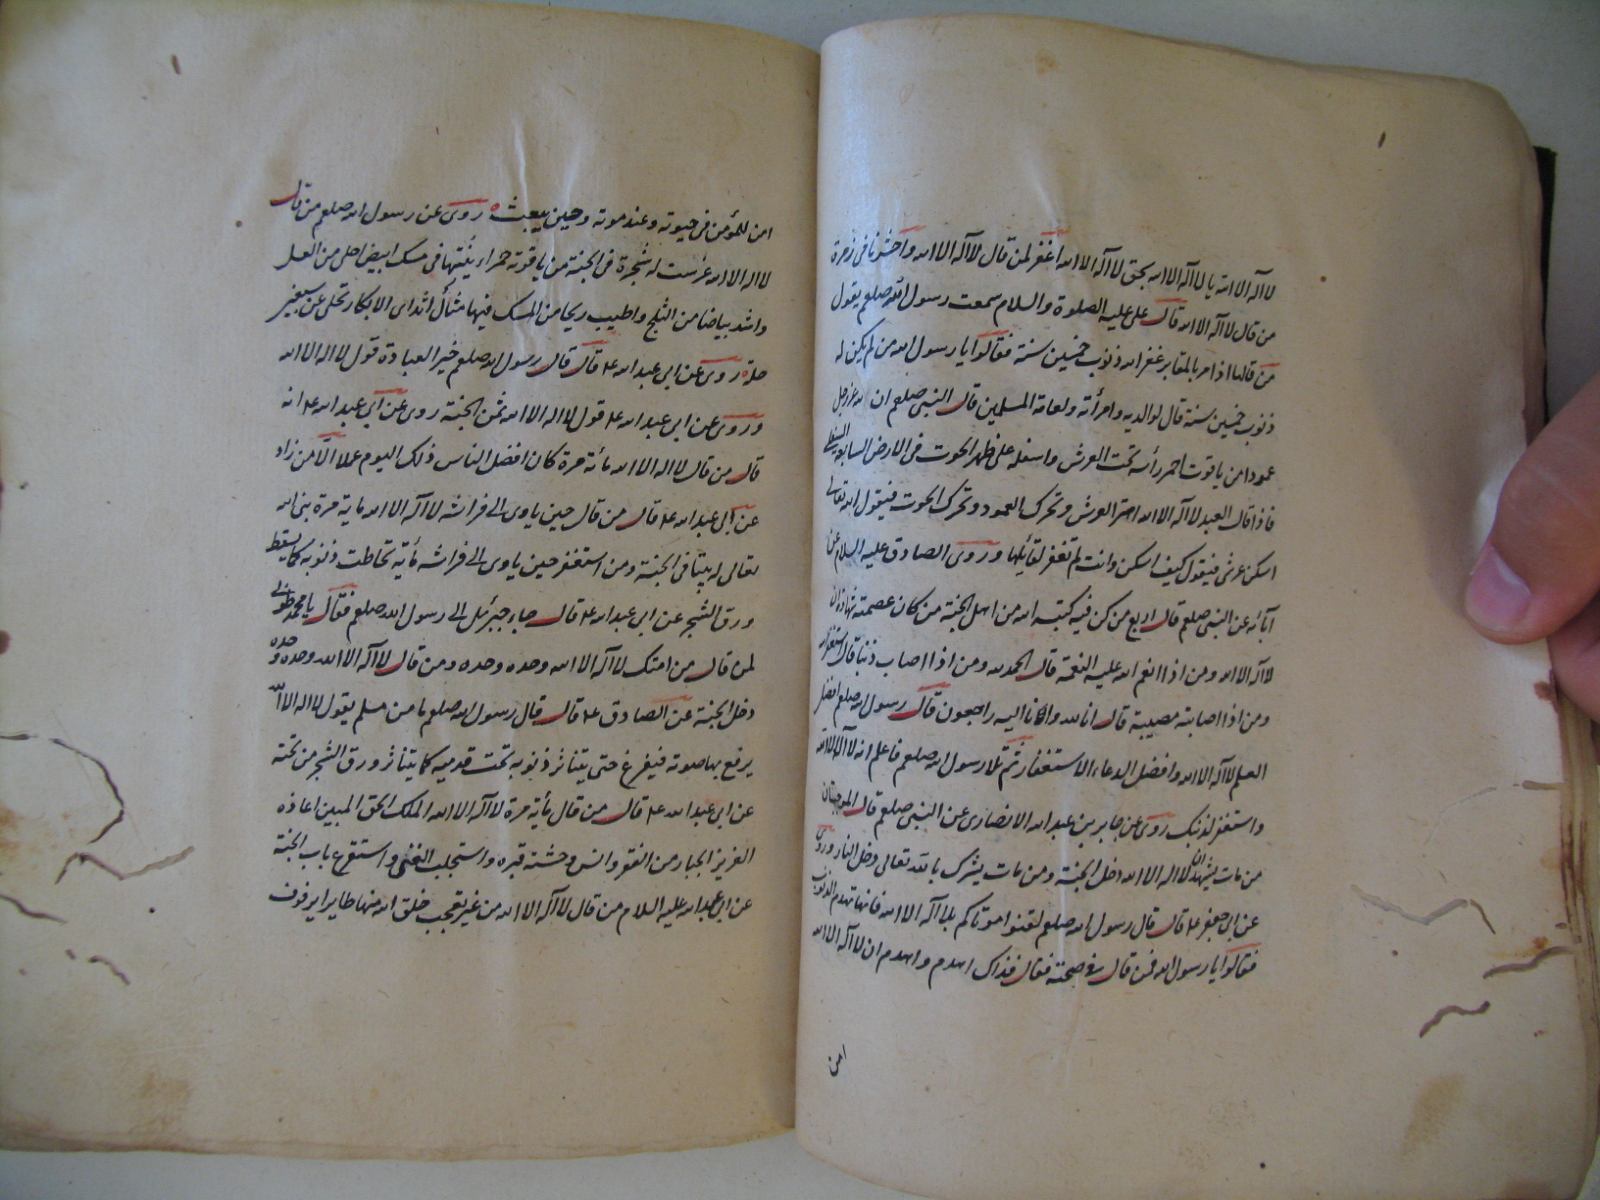 لا اله الا الله يا لا اله الا الله بحق لا اله الا الله اغفر لمن قال لا اله الا الله واحشرنا فى زمرة
من قال لا اله الا الله قال على عليه الصلوة والسلام سمعت رسول الله صلعم يقول
من قالها اذا مر بالمقابر غفر الله ذنوب خمسين سنة فقالوا يا رسول الله من لم يكن له
ذنوب خمسين سنة قال لوالديه وامرأته ولعامة المسلمين قال النبى صلعم ان لله عز وجل
عمودا من ياقوت احمر رأسه تحت العرش واسفله على ظهر الحوت فى الارض السابعة السفلى
فاذا قال العبد لا اله الا الله اهتز العرش وتحرك العمود وتحرك الحوت فيقول الله تعالى
اسكن عرشى فيقول كيف اسكن وانت لم تغفر لقائلها وروى الصادق عليه السلام عن
آبائه عن النبى صلعم قال اربع من كن فيه كتبه الله من اهل الجنة من كان عصمته شهادة ان
لا اله الا الله ومن اذا انعم الله عليه النعمة قال الحمد لله ومن اذا اصاب ذنبا قال استغفر الله
ومن اذا اصابته مصيبة قال انا لله وانا اليه راجعون قال رسول الله صلعم افضل
العلم لا اله الا الله وافضل الدعاء الاستغفار ثم تلا رسول الله صلعم فاعلم انه لا اله الا الله
واستغفر لذنبك روى عن جابر بن عبد الله الانصارى عن النبى صلعم قال الموجبتان
من مات يشهد ان لا اله الا الله دخل الجنة ومن مات يشرك بالله تعالى دخل النار وروى
عن ابى جعفر ع قال قال رسول الله صلعم لقنوا امواتاكم بلا اله الا الله فانها تهدم الذنوب
فقالوا يا رسول الله فمن قال فى صحته فقال فذاك اهدم واهدم ان لا اله الا الله
امن
امن للمؤمن فى حيوته وعند موته وحين يبعث روى عن رسول الله صلعم من قال
لا اله الا الله غرست له شجرة فى الجنة من ياقوتة حمراء منبتها فى مسك ابيض احلى من العسل
واشد بياضا من الثلج واطيب ريحا من المسك فيها مثال اثداى الابكار تحلى عن سبعين
حلة روى عن ابى عبد الله ع قال قال رسول الله صلعم خير العبادة قول لا اله الا الله
وروى عن ابى عبد الله ع قول لا اله الا الله ثمن الجنة روى عن ابى عبد الله ع انه
قال من قال لا اله الا الله مأئة مرة كان افضل الناس ذلك اليوم عملا الا من زاد
عن ابى عبد الله ع قال من قال حين ياوى الى فراشه لا اله الا الله ماية مرة بنى الله
تعالى له بيتا فى الجنة ومن استغفر حين ياوى الى فراشه مأية تحاطت ذنوبه كما يسقط
ورق الشجر عن ابى عبد الله ع قال جاء جبرئيل الى رسول الله صلعم فقال يا محمد طوبى
لمن قال من امتك لا اله الا الله وحده وحده ومن قال لا اله الا الله وحده وحده
دخل الجنة عن الصادق ع قال قال رسول الله صلعم ما من مسلم يقول لا اله الا الله
يرفع بها صوته فيفرغ حتى يتناثر ذنوبه تحت قدميه كما يتناثر ورق الشجر من تحته
عن ابى عبد الله ع قال من قال مأية مرة لا اله الا الله الملك الحق المبين اعاذه
العزيز الجبار من الفقر وانس وحشة قبره واستجلب الغنى واستقرع باب الجنة
عن ابى عبد الله عليه السلام من قال لا اله الا الله من غير تعجب خلق الله منها طايرا يرفرف